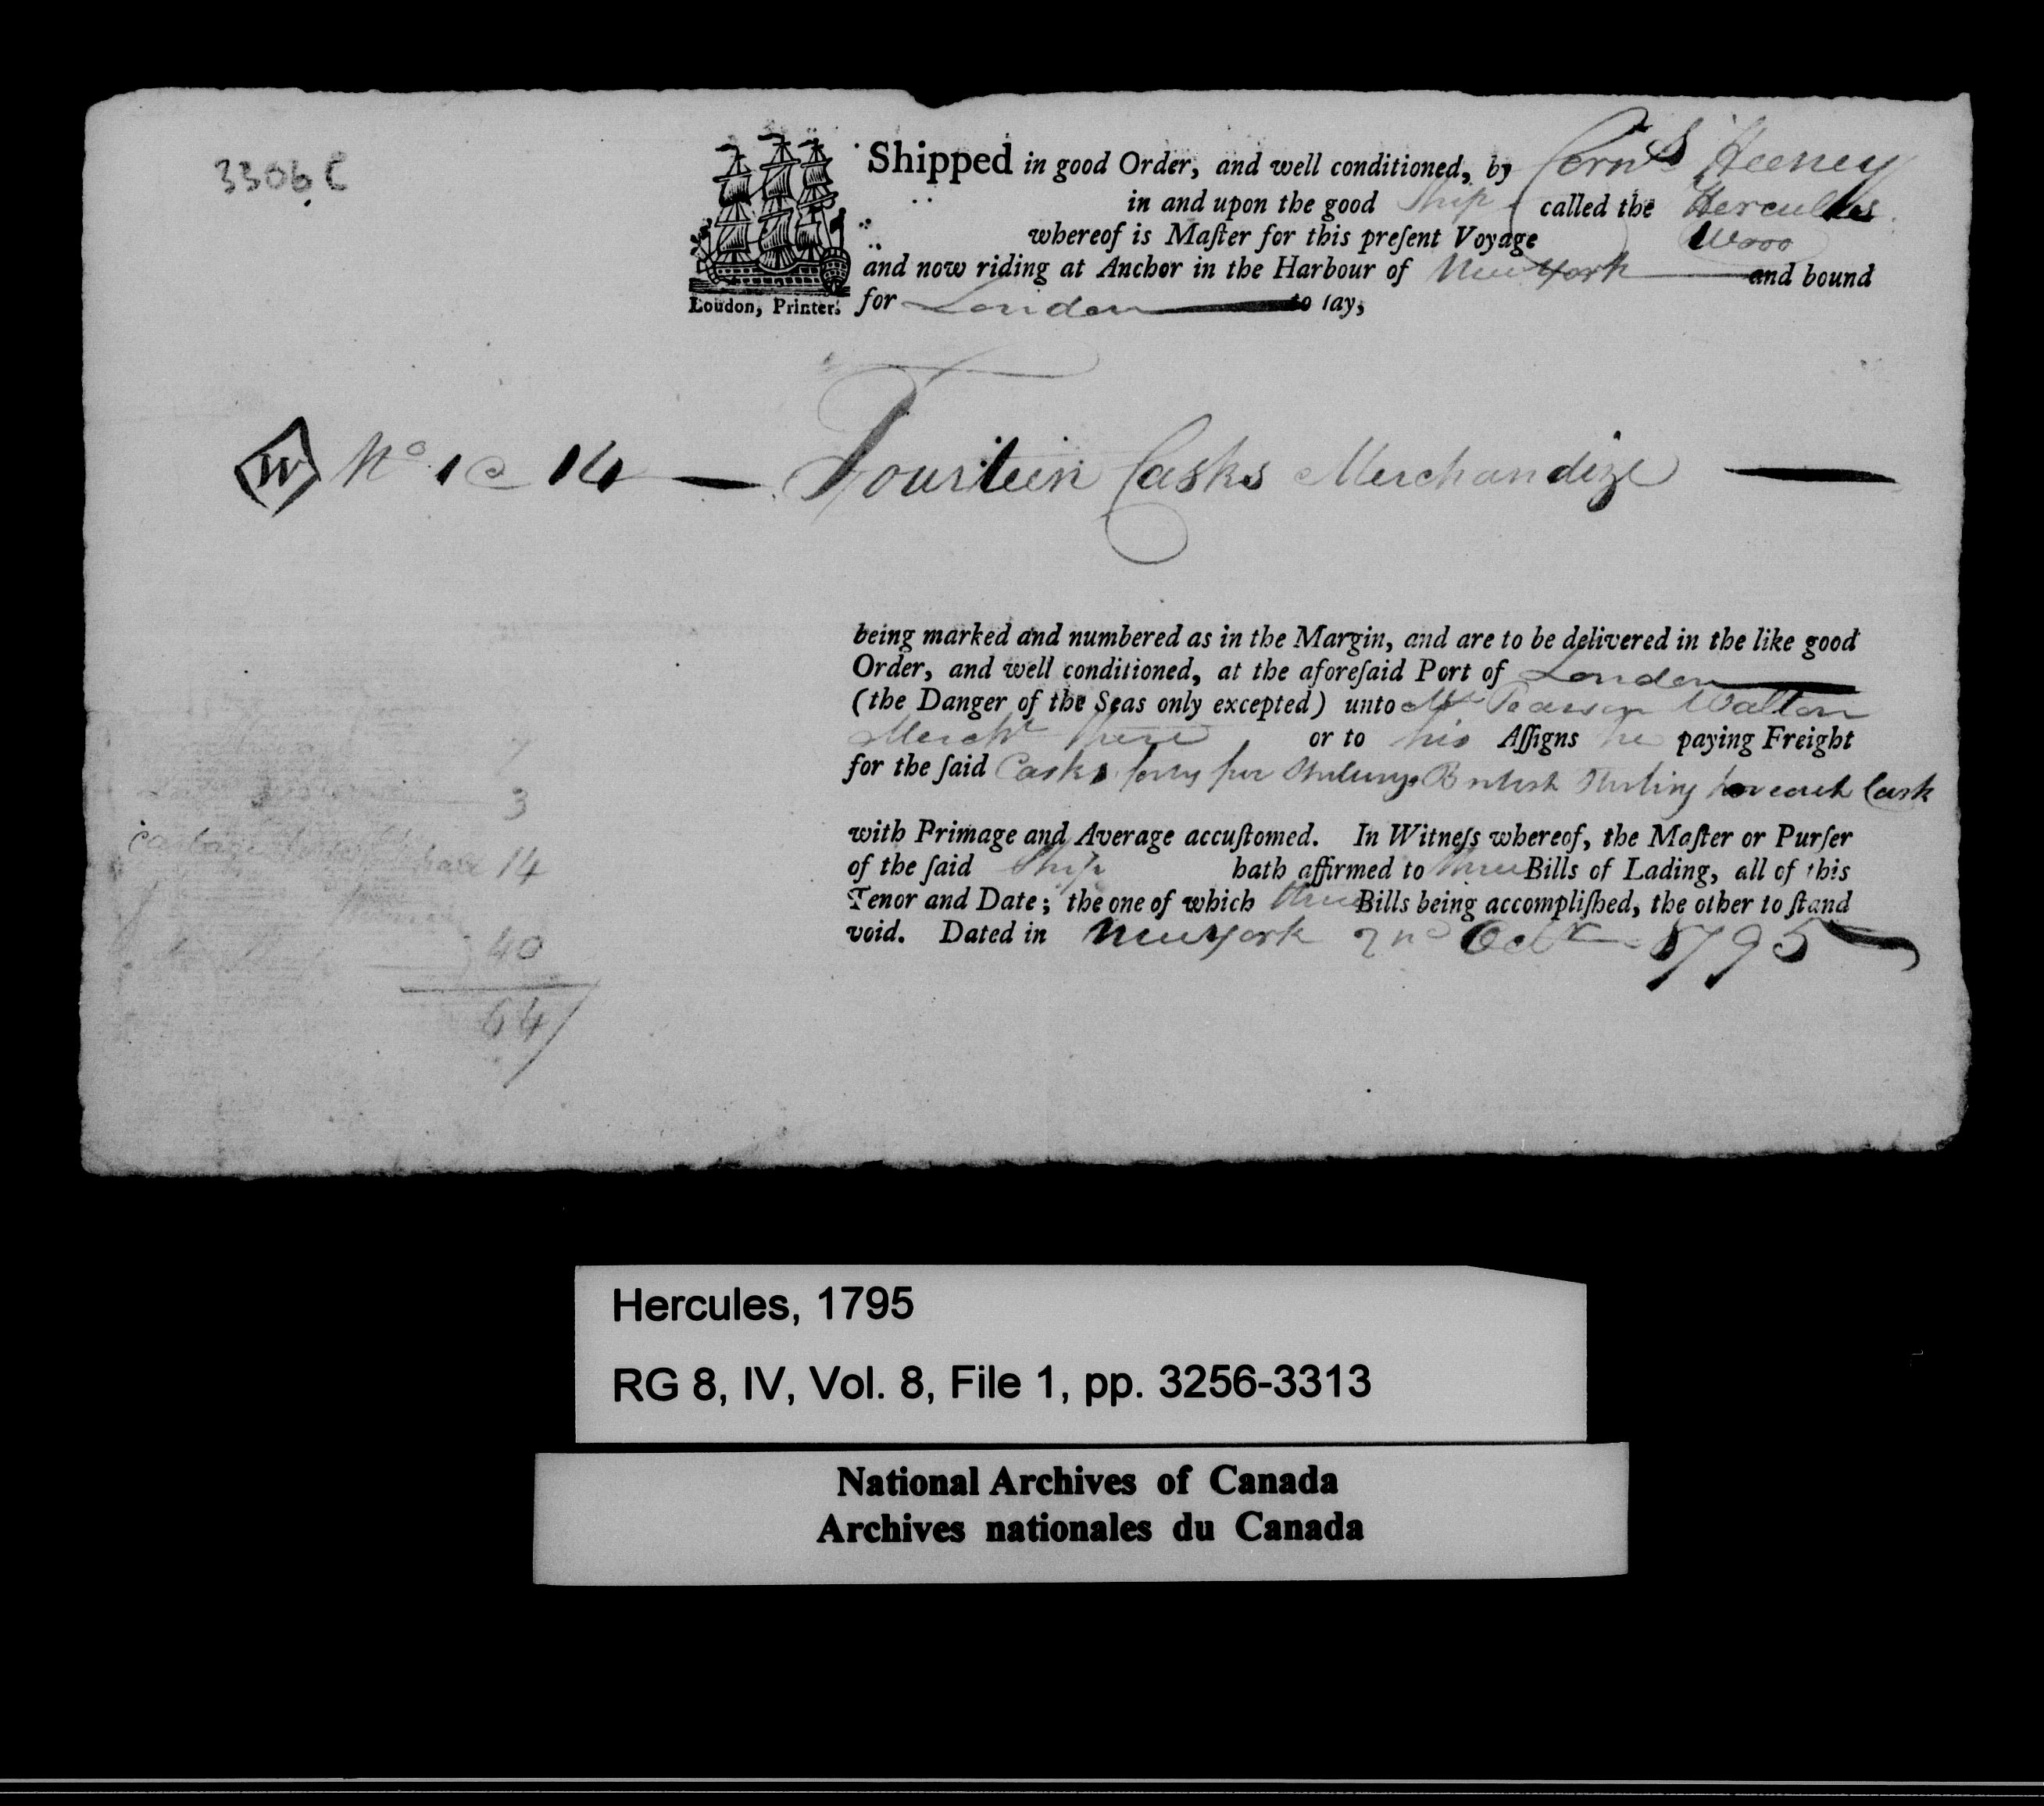 3306 C
Shipped in good Order, and well conditioned, by Corn.s Heeney
in and upon the good Ship called the Hercules
whereof is Maſter for this preſent Voyage Wooo
and now riding at Anchor in the Harbour of New York and bound
for London to ſay,
Loudon, Printer.
W No. 1 @ 14 — Fourteen Casks Merchandize —
being marked and numbered as in the Margin, and are to be delivered in the like good
Order, and well conditioned, at the aforeſaid Port of London
(the Danger of the Seas only excepted) unto Mr Pearson Walton
Mercht there or to his Aſſigns he paying Freight
for the ſaid Casks forty five Shillings British Sterling for each Cask
with Primage and Average accuſtomed. In Witneſs whereof, the Maſter or Purſer
of the ſaid Ship hath affirmed to three Bills of Lading, all of this
Tenor and Date; the one of which three Bills being accompliſhed, the other to ſtand
void. Dated in New York 2nd Octr 1795
7
3
14
40
64/
Hercules, 1795
RG 8, IV, Vol. 8, File 1, pp. 3256-3313
National Archives of Canada
Archives nationales du Canada